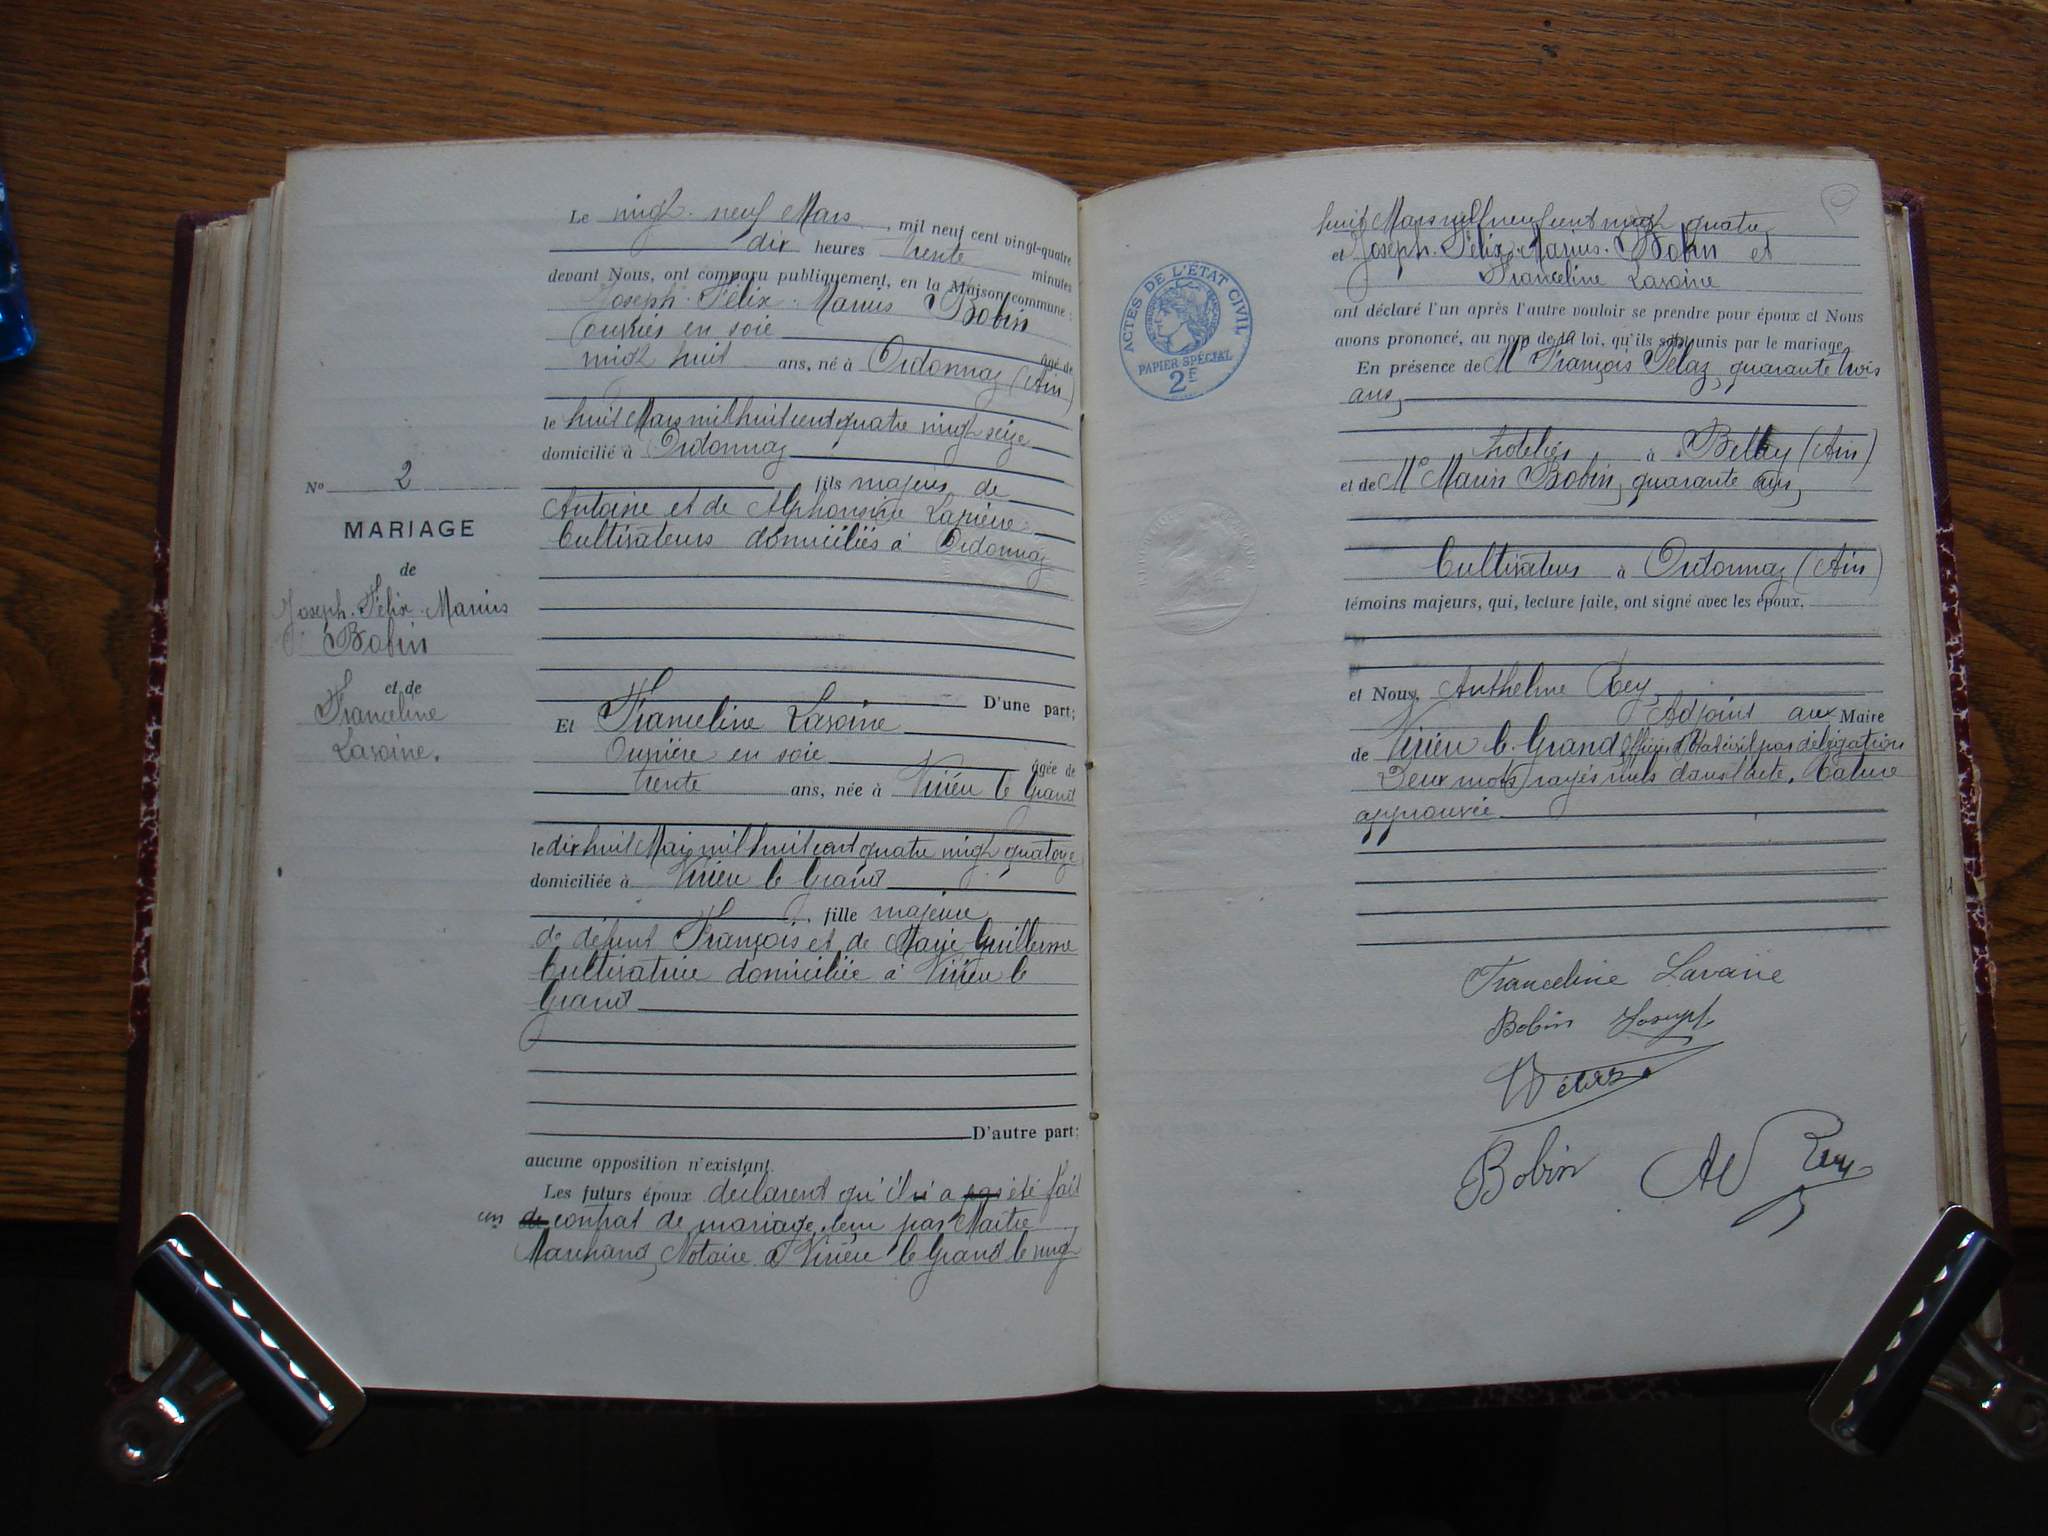 Le vingt-neuf Mars, mil neuf cent vingt-quatre
dix heures trente minutes
devant Nous, ont comparu publiquement, en la Maison commune :
Joseph-Félix-Marius Bobin
ouvrier en soie âgé de
vingt huit ans, né à Ordonnaz (Ain)
le huit Mars mil huit cent quatre vingt seize
domicilié à Ordonnaz
fils majeur de
Antoine et de Alphonsine Lapierre
Cultivateurs domiciliés à Ordonnaz
D'une part;
Et Franceline Lavoine
Ouvrière en soie âgée de
trente ans, née à Virieu le Grand
le dix huit Mai mil huit cent quatre vingt quatorze
domiciliée à Virieu le Grand
, fille majeure
de défunt François et de Marie Guillerme
Cultivatrice domiciliée à Virieu le
Grand
D'autre part;
aucune opposition n'existant.
Les futurs époux déclarent qu'il a pas été fait
un de contrat de mariage, reçu par Maître
Marchand, Notaire à Virieu le Grand le vingt
No 2
MARIAGE
de
Joseph-Félix-Marius
Bobin
et de
Franceline
Lavoine.
huit Mars mil neuf cent vingt quatre
et Joseph-Félix-Marius-Bobin et
Franceline Lavoine
ont déclaré l'un après l'autre vouloir se prendre pour époux et Nous
avons prononcé, au nom de la loi, qu'ils sont unis par le mariage
En présence de Mr François Pélaz, quarante trois
ans,
hotelier à Belley (Ain)
et de Mr Marin Bobin, quarante ans,
Cultivateur à Ordonnaz (Ain)
témoins majeurs, qui, lecture faite, ont signé avec les époux,
et Nous, Anthelme Rey,
Adjoint au Maire
de Virieu le Grand, Officier d'Etat civil par délégation
Deux mots rayés nuls dans l'acte. Rature
approuvée
Franceline Lavoine
Bobin Joseph
Pélaz
Bobin
A Rey
ACTES DE L'ÉTAT CIVIL
PAPIER SPÉCIAL
2F